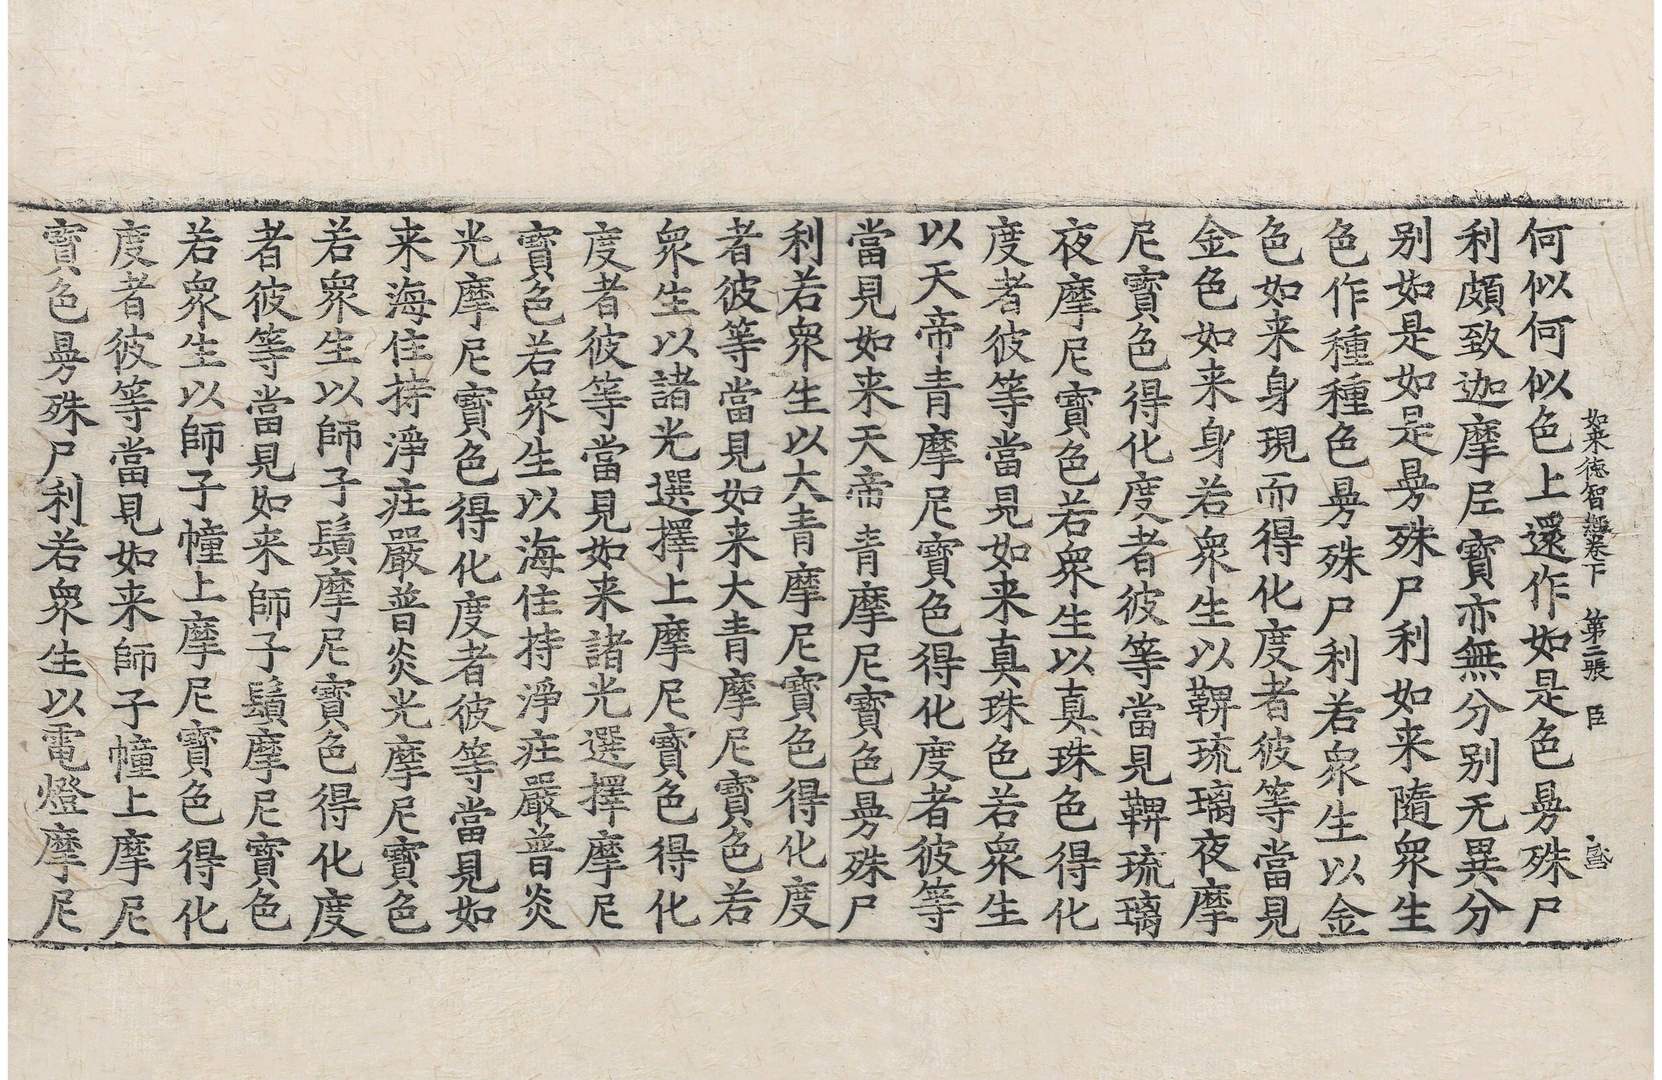 如来德智經卷下 第二張 臣
何似何似色上還作如是色曼殊尸
利頗致迦摩尼寶亦無分别无異分
别如是如是曼殊尸利如来隨衆生
色作種種色曼殊尸利若衆生以金
色如来身現而得化度者彼等當見
金色如来身若衆生以鞞琉璃夜摩
尼寶色得化度者彼等當見鞞琉璃
夜摩尼寶色若衆生以真珠色得化
度者彼等當見如来真珠色若衆生
以天帝青摩尼寶色得化度者彼等
當見如来天帝青摩尼寶色曼殊尸
利若衆生以大青摩尼寶色得化度
者彼等當見如来大青摩尼寶色若
衆生以諸光選擇上摩尼寶色得化
度者彼等當見如来諸光選擇摩尼
寶色若衆生以海住持淨庄嚴普炎
光摩尼寶色得化度者彼等當見如
来海住持淨庄嚴普炎光摩尼寶色
若衆生以師子鬚摩尼寶色得化度
者彼等當見如来師子鬚摩尼寶色
若衆生以師子幢上摩尼寶色得化
度者彼等當見如来師子幢上摩尼
寶色曼殊尸利若衆生以電燈摩尼